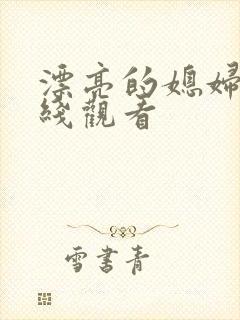 漂亮的媳婦
綫觀看
雪書青